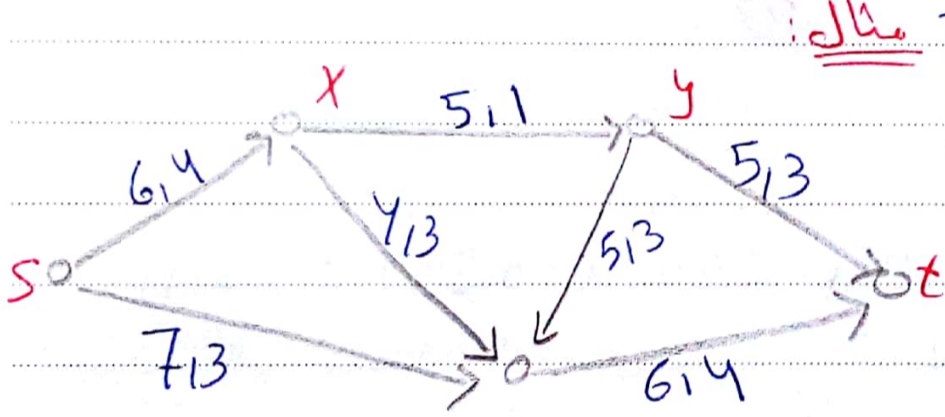 مثال:
x
y
5,1
6,4
5,3
4,3
5,3
s
t
7,3
6,4